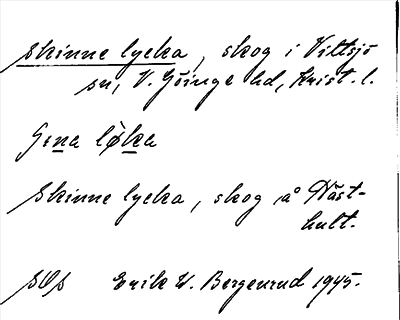 Skinne lycka, skog i Vittsjö
sn, V. Göinge hd, Krist. l.
løka
Skinne lycka, skog å Häst-
hult.
Erik W. Bergenrud 1945.